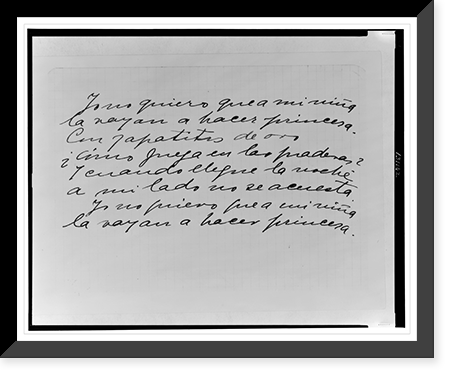 Yo no quiero que a mi niña
la vayan a hacer princesa.
Con zapatitos de oro
¿cómo juega en las praderas?
Y cuando llegue la noche
a mi lado no se acuesta
Yo no quiero que a mi niña
la vayan a hacer princesa.